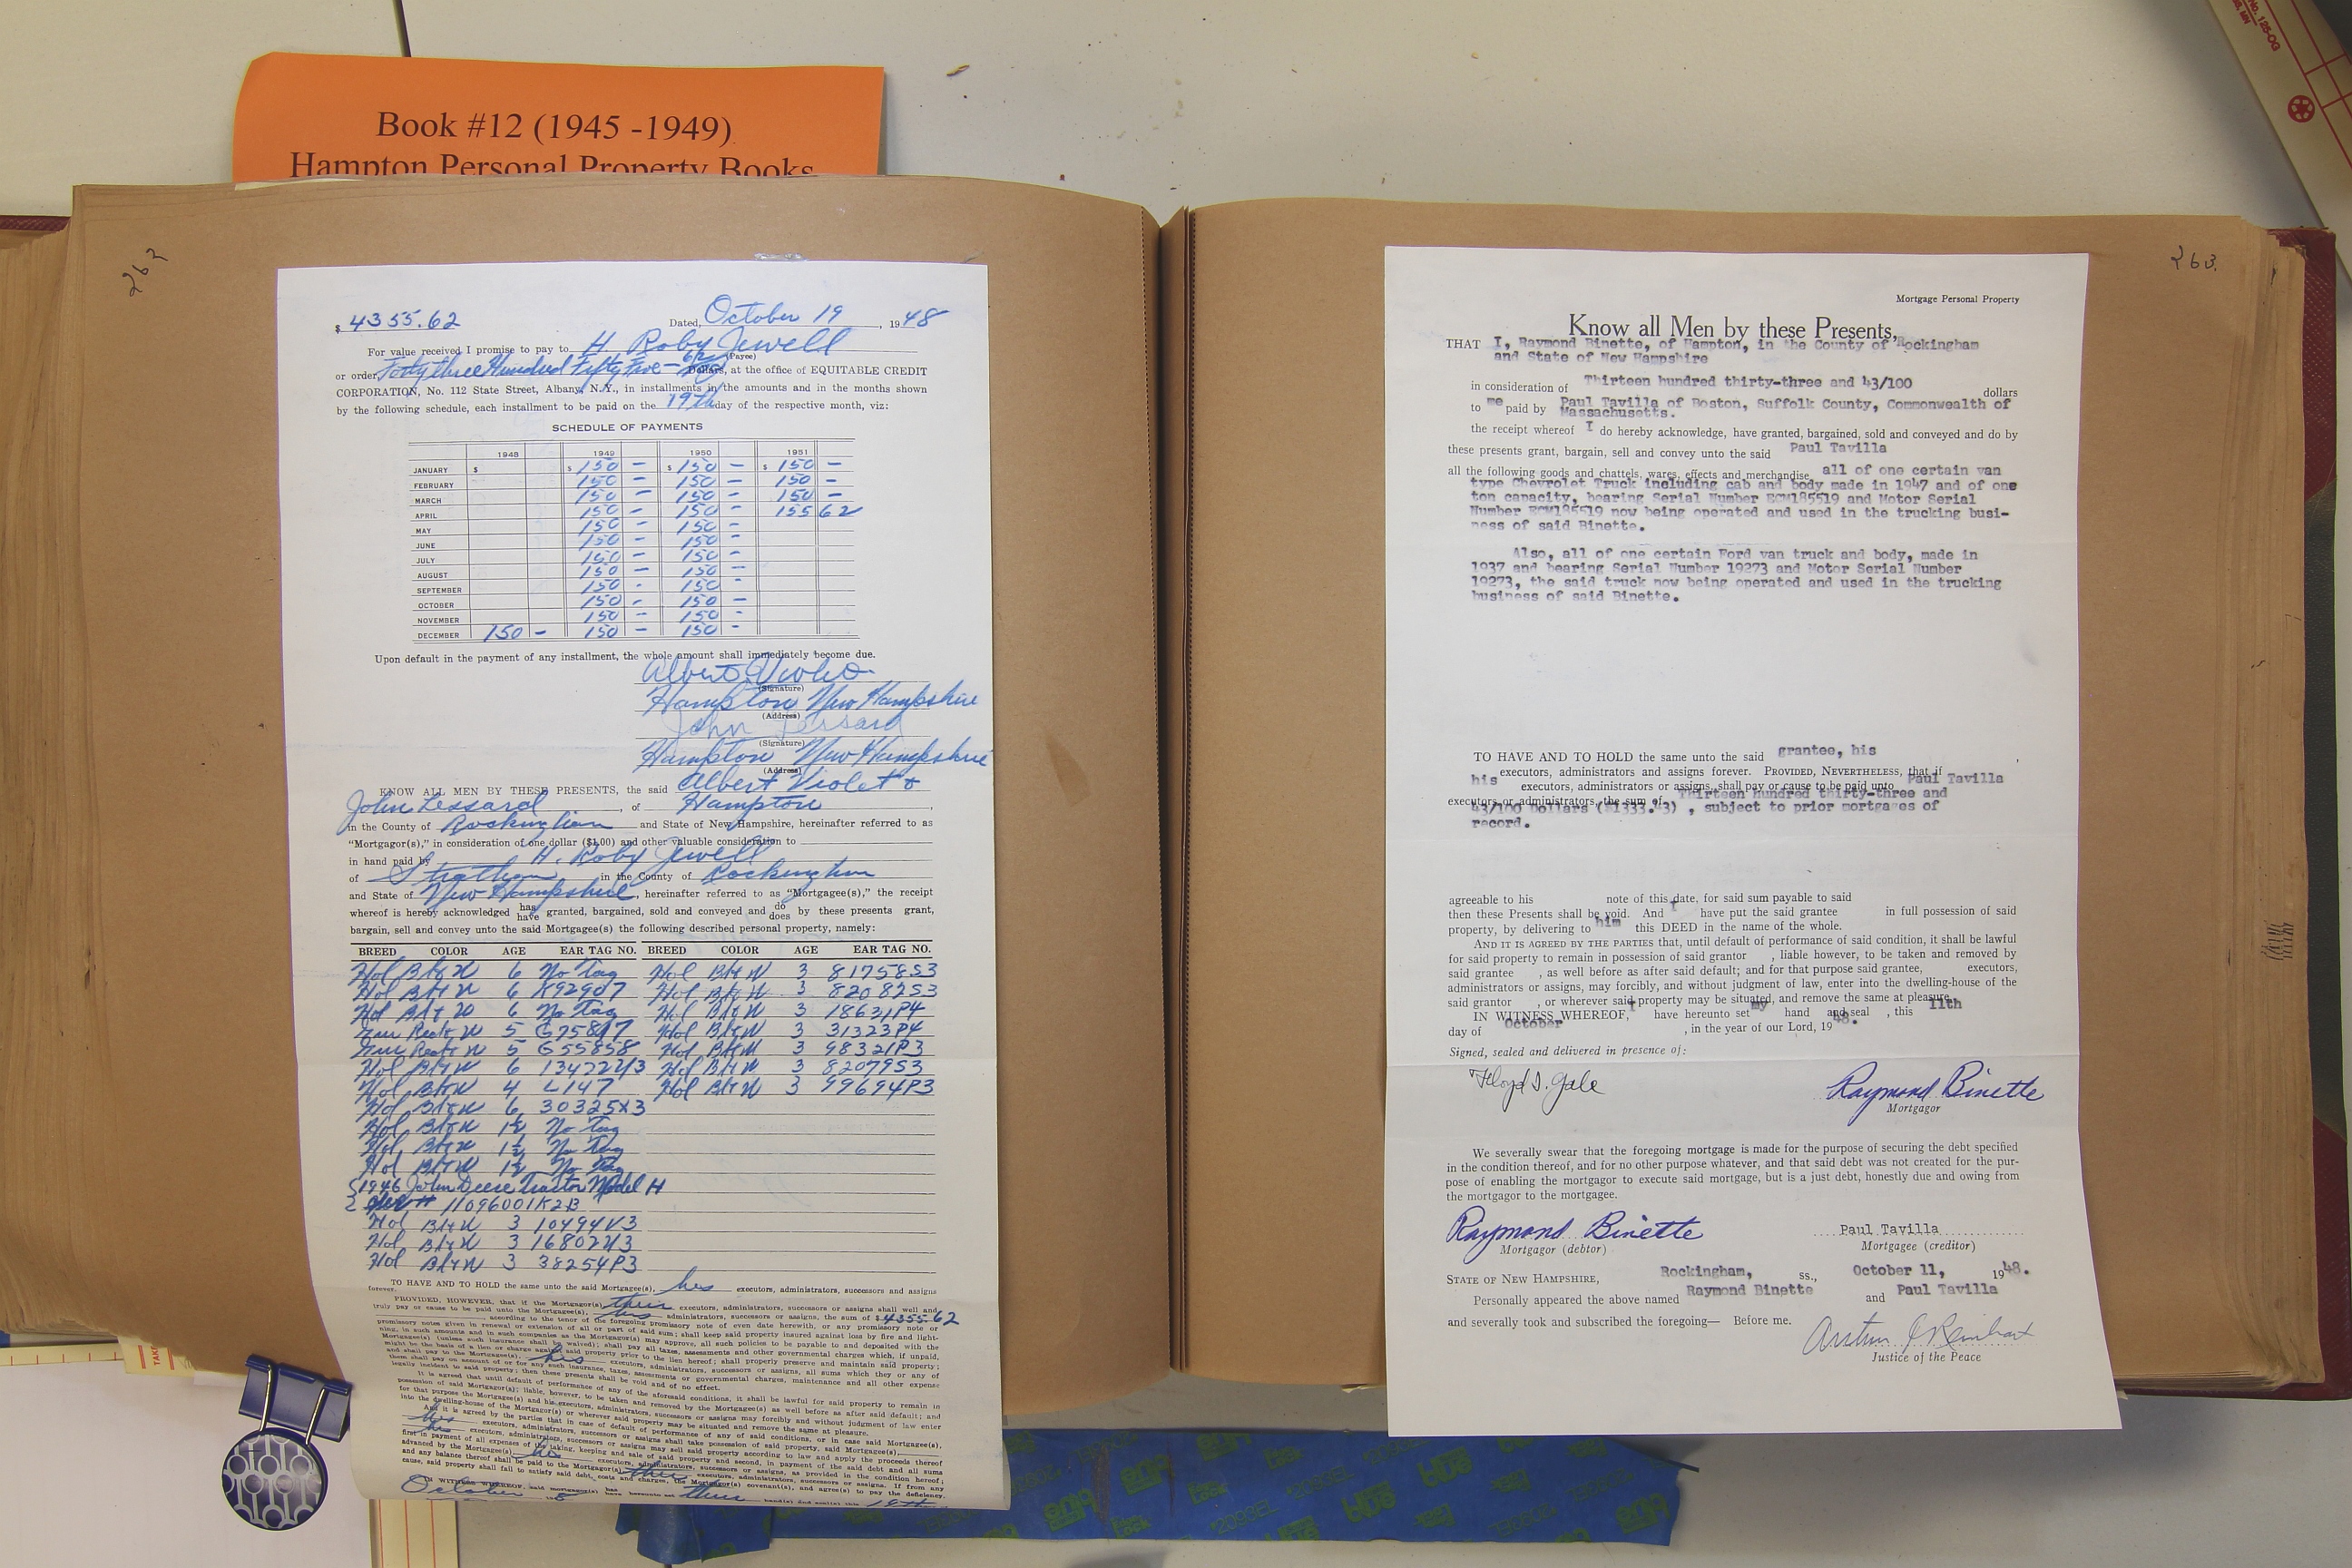 Book #12 (1945 -1949)
Hampton Personal Property Books
262
$ 4355.62
Dated, October 19, 1948
For value received I promise to pay to H Roby Jewell
(Payee)
or order Forty three Hundred Fifty Five - 62 Dollars, at the office of EQUITABLE CREDIT
CORPORATION, No. 112 State Street, Albany, N.Y., in installments in the amounts and in the months shown
by the following schedule, each installment to be paid on the 19th day of the respective month, viz:
SCHEDULE OF PAYMENTS
1948 1949 1950 1951
JANUARY $ $ 150 - $ 150 - $ 150 -
FEBRUARY 150 - 150 - 150 -
MARCH 150 - 150 - 150 -
APRIL 150 - 150 - 155 62
MAY 150 - 150 -
JUNE 150 - 150 -
JULY 150 - 150 -
AUGUST 150 - 150 -
SEPTEMBER 150 - 150 -
OCTOBER 150 - 150 -
NOVEMBER 150 - 150 -
DECEMBER 150 - 150 - 150 -
Upon default in the payment of any installment, the whole amount shall immediately become due.
Albert
(Signature)
Hampton New Hampshire
(Address)
John Lessard
(Signature)
Hampton New Hampshire
(Address)
KNOW ALL MEN BY THESE PRESENTS, the said Albert Violet &
John Lessard, of Hampton,
in the County of Rockingham and State of New Hampshire, hereinafter referred to as
"Mortgagor(s)," in consideration of one dollar ($1.00) and other valuable consideration to
in hand paid by H. Roby Jewell
of Stratham in the County of Rockingham
and State of New Hampshire, hereinafter referred to as "Mortgagee(s)," the receipt
whereof is hereby acknowledged has have granted, bargained, sold and conveyed and do does by these presents grant,
bargain, sell and convey unto the said Mortgagee(s) the following described personal property, namely:
BREED COLOR AGE EAR TAG NO. BREED COLOR AGE EAR TAG NO.
Hol B&W 6 No Tag Hol B&W 3 81758S3
Hol B&W 6 K92907 Hol B&W 3 82082S3
Hol B&W 6 No Tag Hol B&W 3 18631P4
5 G75817 Hol B&W 3 31323P4
5 G55858 Hol B&W 3 98321P3
Hol B&W 6 Hol B&W 3 82079S3
Hol B&W 4 L147 Hol B&W 3 99694P3
Hol B&W 6 30325X3
Hol B&W 1½ No Tag
Hol B&W 1½ No Tag
Hol B&W 1½ No Tag
1946 John Deere Tractor Model H
11096001K2B
Hol B&W 3 10494V3
Hol B&W 3
Hol B&W 3 38254P3
TO HAVE AND TO HOLD the same unto the said Mortgagee(s), his executors, administrators, successors and assigns
forever.
PROVIDED, HOWEVER, that if the Mortgagor(s) their executors, administrators, successors or assigns shall well and
truly pay or cause to be paid unto the Mortgagee(s), his executors, administrators, successors or assigns, the sum of $4355.62
according to the tenor of the foregoing promissory note of even date herewith, or any promissory note or
promissory notes given in renewal or extension of all or part of said sum; shall keep said property insured against loss by fire and light-
ning, in such amounts and in such companies as the Mortgagee(s) may approve, all such policies to be payable to and deposited with the
Mortgagee(s) (unless such insurance shall be waived); shall pay all taxes, assessments and other governmental charges which, if unpaid,
might be the basis of a lien or charge against said property prior to the lien hereof; shall properly preserve and maintain said property;
and shall pay to the Mortgagee(s), his executors, administrators, successors or assigns, all sums which they or any of
them shall pay on account of or for any such insurance, taxes, assessments or governmental charges, maintenance and all other expense
legally incident to said property; then these presents shall be void and of no effect.
It is agreed that until default of performance of any of the aforesaid conditions, it shall be lawful for said property to remain in
possession of said Mortgagor(s); liable, however, to be taken and removed by the Mortgagee(s) as well before as after said default; and
for that purpose the Mortgagee(s) and his executors, administrators, successors or assigns may forcibly and without judgment of law enter
into the dwelling-house of the Mortgagor(s) or wherever said property may be situated and remove the same at pleasure.
And it is agreed by the parties that in case of default of performance of any of said conditions, or in case said Mortgagee(s),
his executors, administrators, successors or assigns shall take possession of said property, said Mortgagee(s),
his executors, administrators, successors or assigns may sell said property according to law and apply the proceeds thereof
first in payment of all expenses of the taking, keeping and sale of said property and second, in payment of the said debt and all sums
advanced by the Mortgagee(s), his executors, administrators, successors or assigns, as provided in the condition hereof;
and any balance thereof shall be paid to the Mortgagor(s) their executors, administrators, successors or assigns. If from any
cause, said property shall fail to satisfy said debt, costs and charges, the Mortgagor(s) covenant(s), and agree(s) to pay the deficiency.
IN WITNESS WHEREOF, said mortgagor(s) has have hereunto set their hand(s) and seal(s) this 19th
October
263.
Mortgage Personal Property
Know all Men by these Presents,
THAT I, Raymond Binette, of Hampton, in the County of Rockingham
and State of New Hampshire
in consideration of Thirteen hundred thirty-three and 43/100 dollars
to me paid by Paul Tavilla of Boston, Suffolk County, Commonwealth of
Massachusetts.
the receipt whereof I do hereby acknowledge, have granted, bargained, sold and conveyed and do by
these presents grant, bargain, sell and convey unto the said Paul Tavilla
all the following goods and chattels, wares, effects and merchandise, all of one certain van
type Chevrolet Truck including cab and body made in 1947 and of one
ton capacity, bearing Serial Number ECM185519 and Motor Serial
Number ECM185519 now being operated and used in the trucking busi-
ness of said Binette.
Also, all of one certain Ford van truck and body, made in
1937 and bearing Serial Number 19273 and Motor Serial Number
19273, the said truck now being operated and used in the trucking
business of said Binette.
TO HAVE AND TO HOLD the same unto the said grantee, his
his executors, administrators and assigns forever. PROVIDED, NEVERTHELESS, that if
executors, administrators or assigns, shall pay or cause to be paid unto Paul Tavilla
executors or administrators, the sum of Thirteen hundred thirty-three and
43/100 Dollars ($1333.43) , subject to prior mortgages of
record.
agreeable to his note of this date, for said sum payable to said
then these Presents shall be void. And I have put the said grantee in full possession of said
property, by delivering to him this DEED in the name of the whole.
AND IT IS AGREED BY THE PARTIES that, until default of performance of said condition, it shall be lawful
for said property to remain in possession of said grantor , liable however, to be taken and removed by
said grantee , as well before as after said default; and for that purpose said grantee, executors,
administrators or assigns, may forcibly, and without judgment of law, enter into the dwelling-house of the
said grantor , or wherever said property may be situated, and remove the same at pleasure.
IN WITNESS WHEREOF, I have hereunto set my hand and seal , this 11th
day of October , in the year of our Lord, 1948.
Signed, sealed and delivered in presence of:
Floyd I. Gale
Raymond Binette
Mortgagor
We severally swear that the foregoing mortgage is made for the purpose of securing the debt specified
in the condition thereof, and for no other purpose whatever, and that said debt was not created for the pur-
pose of enabling the mortgagor to execute said mortgage, but is a just debt, honestly due and owing from
the mortgagor to the mortgagee.
Raymond Binette Paul Tavilla
Mortgagor (debtor) Mortgagee (creditor)
STATE OF NEW HAMPSHIRE, Rockingham, ss., October 11, 1948.
Personally appeared the above named Raymond Binette and Paul Tavilla
and severally took and subscribed the foregoing— Before me.
Arthur J Reinhart
Justice of the Peace